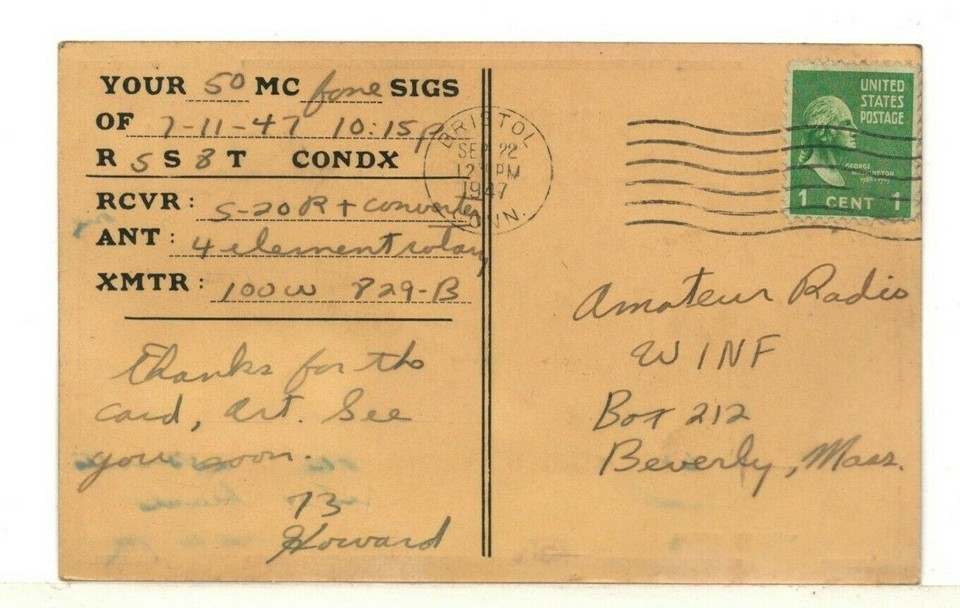 YOUR 50 MC fone SIGS
OF 7-11-47 10:15p
R 5 S 8 T CONDX
RCVR: S-20R + converter
ANT: 4 element rotary
XMTR: 100W 829-B
Thanks for the
card, Art. See
you soon.
73
Howard
BRISTOL
SEP 22
12 PM
1947
CONN.
UNITED
STATES
POSTAGE
GEORGE
WASHINGTON
1 CENT 1
Amateur Radio
W1NF
Box 212
Beverly, Mass.